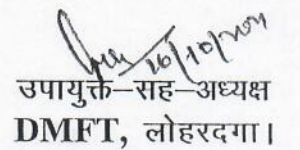 26/10/2021
उपायुक्त–सह–अध्यक्ष
DMFT, लोहरदगा।